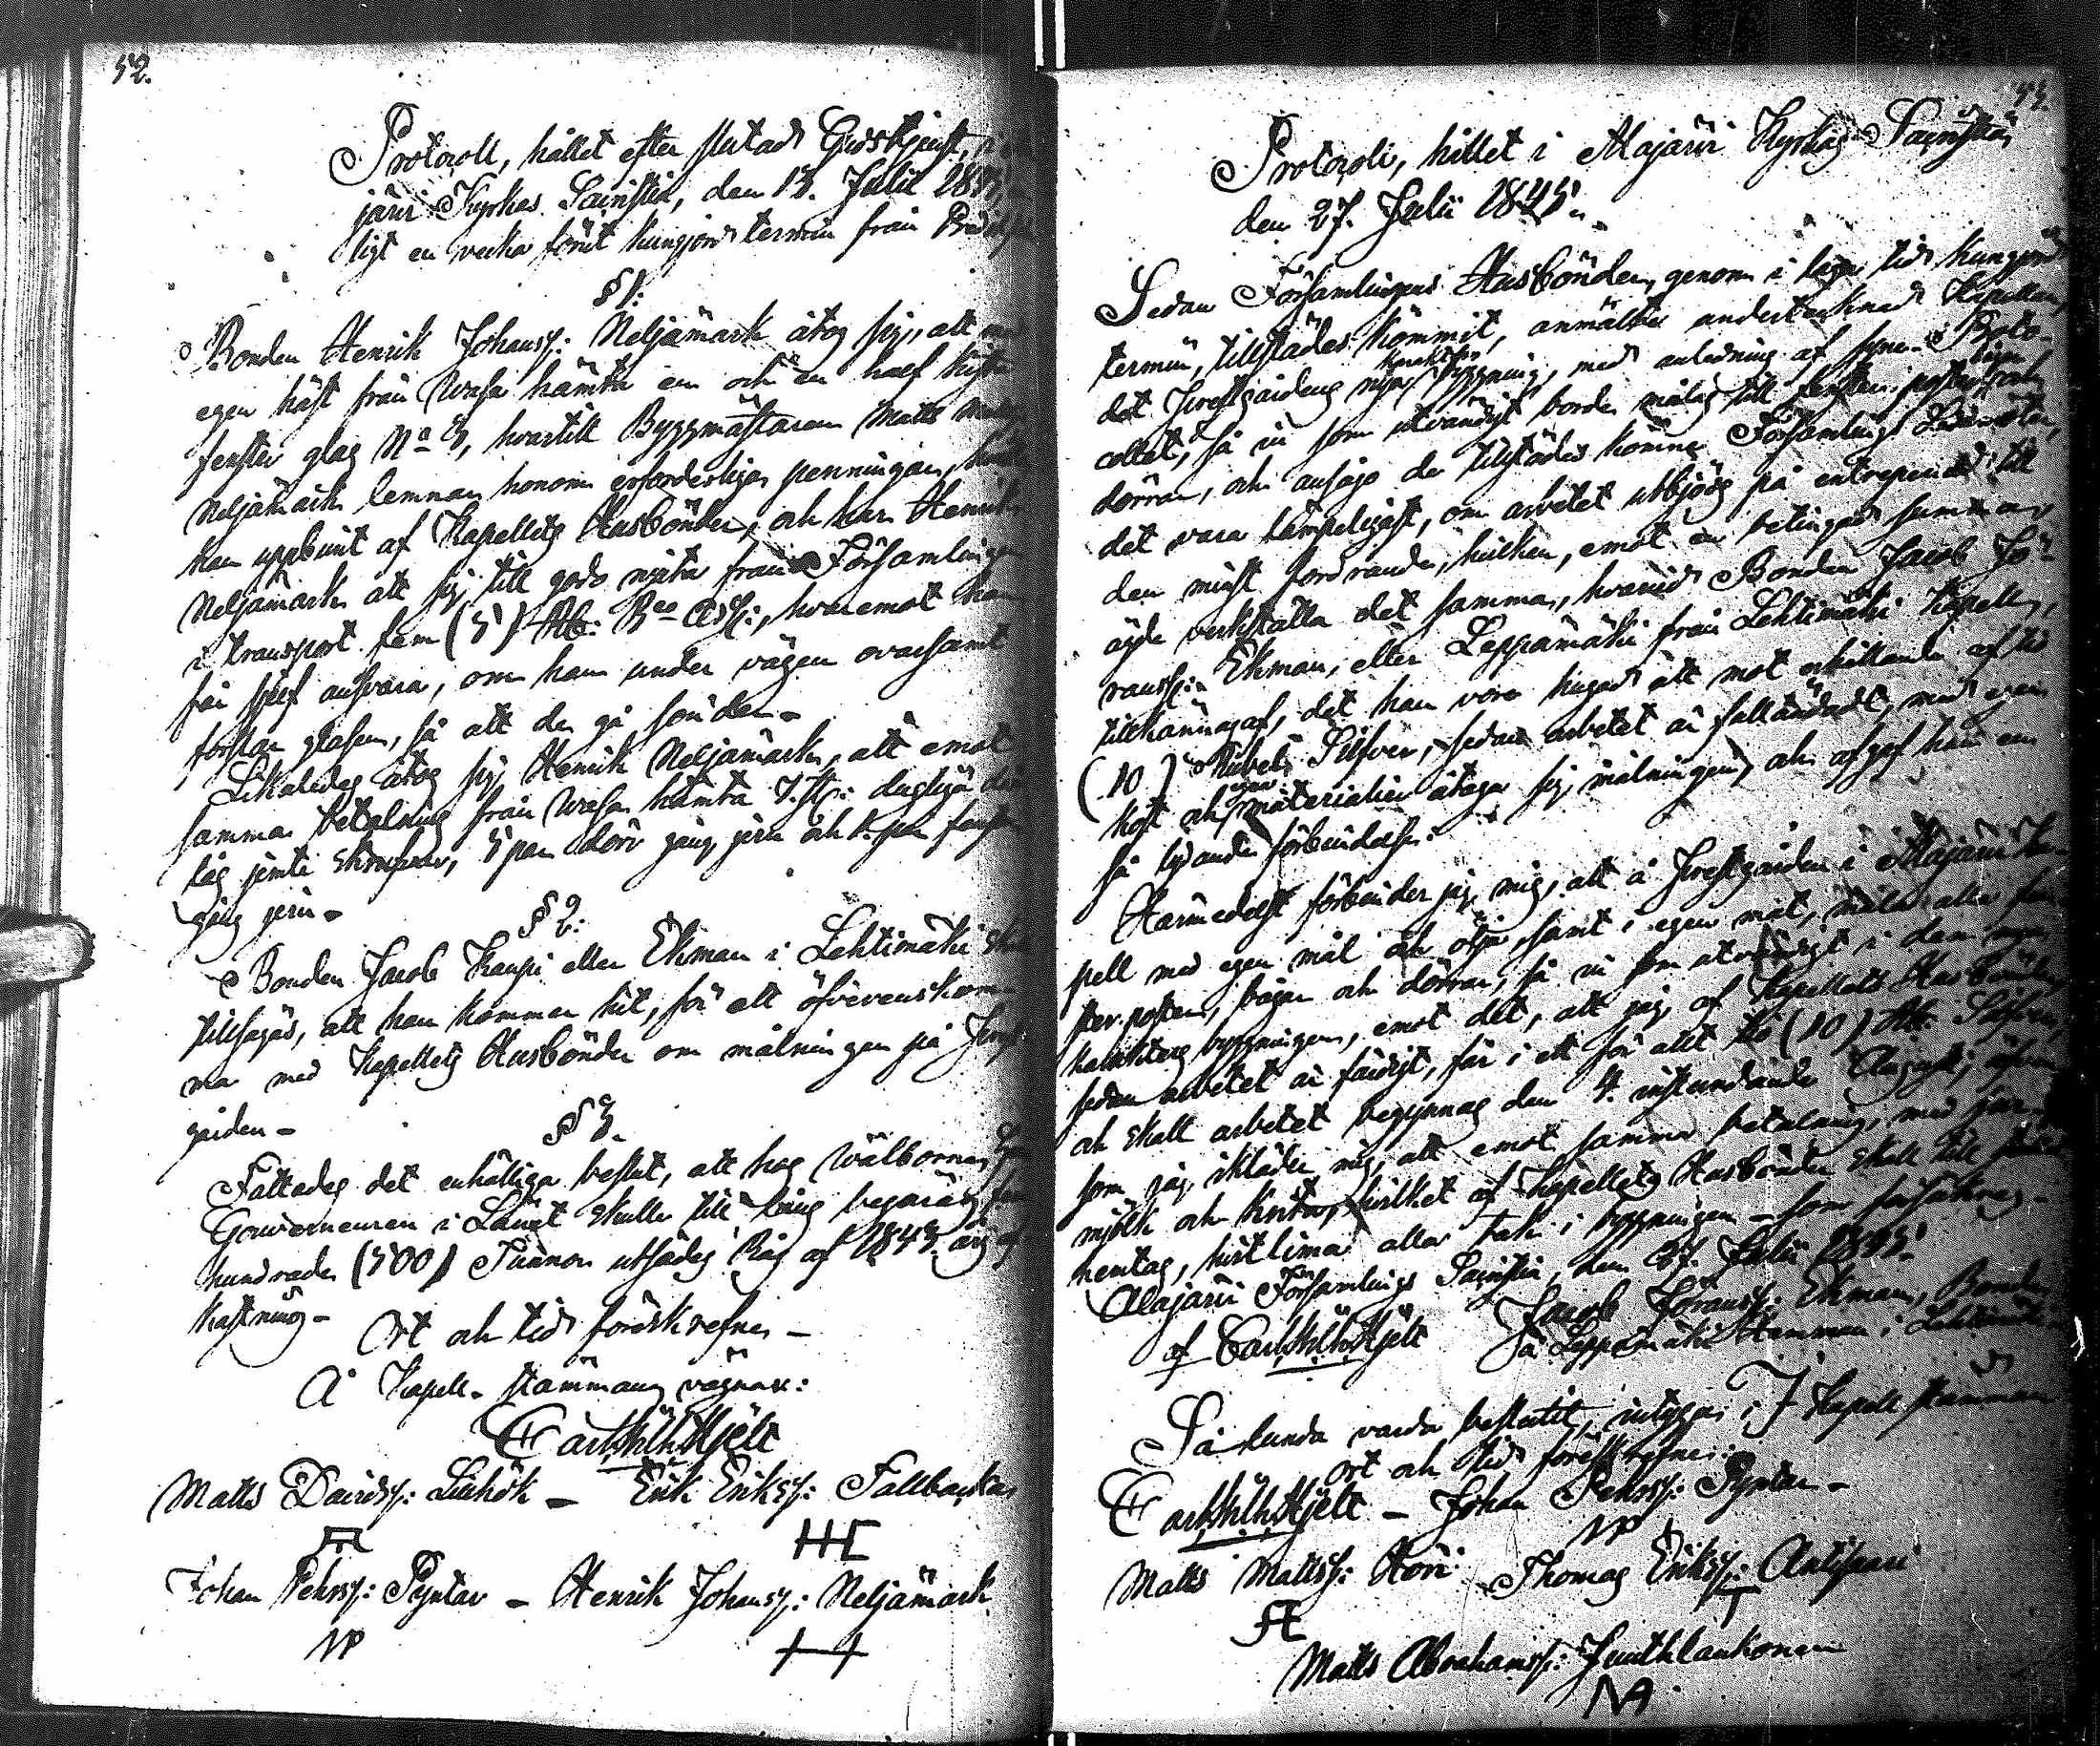 52.
Protocoll, hållet efter slutad Gudstjenst, i
järvi Kyrkas Sacristia, den 13. Julii 1845,
ligt en vecka förut kungjord termin från Predik
§ 1.
Bonden Henrik Johanss: Neljämark åtog sig, att med
egen häst från Wasa hämta en och en half kista
fenster glas No 3, hvartill Byggmästaren Matts
Neljämark lemnar honom erforderliga penningar,
han uppburit af Kapellets Husbönder, och har Henrik
Neljämark att sig till godo njuta från Församlingen
i transport fem (5) Rub: Bco Ass:, hvaremot han
får sjelf ansvara, om han under vägen ovarsamt
forslar glasen, så att de gå sönder.
Likaledes åtog sig Henrik Neljämark, att emot
samma betalning från Wasa hämta 7. st: dugliga dörr
lås jemte skrufvar, 5 par dörr gång jern och 1. par
gång jern.
§ 2.
Bonden Jacob Kaupi eller Ekman i Lehtimäki skall
tillsägas, att han kommer hit, för att öfverenskom-
ma med Kapellets Husbönder om målningen på Prest
gården.
§ 3.
Fattades det enhälliga beslut, att hos Wälborne Herr
Gouverneuren i Länet skulle till låns begäras fem
hundrade (500) Tunnor utsädes Råg af 1843. års af
kastning.
Ort och tid förskrefne.
Å Kapell-stämmans vägnar:
Carl Wilh. Hjelt
Matts Davidss: Liukok — Erik Erikss: Fallbacka
Johan Pehrss: Pyntar — Henrik Johanss: Neljämark
53.
Protocoll, hållet i Alajärvi Kyrkas Sacristia,
den 27. Julii 1845.
Sedan Församlingens Husbönder, genom i laga tid kungjord
termin, tillstädes kommit, anmälte undertecknad Kapellan,
det Prestgårdens nya karakters byggning, med anledning af syne-Proto-
collet, så in som utvändigt borde målas till fenster poster, bågar och
dörrar, och ansågo de tillstädes komne Församlings Ledamöter,
det vara lämpeligast, om arbetet utbjöds på entreprenad till
den minst fordrande, hvilken, emot en betingad summa,
ägde verkställa det samma, hvarvid Bonden Jacob Jö-
ranss: Ekman, eller Leppämäki från Lehtimäki Kapell,
tillkännagaf, det han vore hugad att mot erhållande af tio
(10) Rubel Silfver, sedan arbetet är fulländadt, med egen
kost och egna materialier åtaga sig målningen, och afgaf han en
så lydande förbindelse:
Härmedelst förbinder jag mig, att å Prestgården i Alajärvi Ka-
pell med egen mål och olja, samt i egen mat, måla alla fen-
ster-poster, bågar och dörrar, så in som utvändigt i den nya
karakters byggningen, emot det, att jag af Kapellets Husbönder,
sedan arbetet är färdigt, får i ett för allt tio (10) Rub. Silfver,
och skall arbetet begynnas den 4. instundande Augusti; äfven
som jag ikläder mig, att emot samma betalning, med
mjölk och krita, hvilket af Kapellets Husbönder skall till
hemtas, hvitlimar alla tak i byggningen — som försäkras.
Alajärvi Församlings Sacristia, den 27. Julii 1845.
Jacob Jöranss: Ekman, Bonde
af Carl Wilh. Hjelt på Leppämäki Hemman i Lehtimäki
Så lunda varda beslutit, intygar; I Kapell stämman
ort och tid förskrefne:
Carl Wilh. Hjelt — Johan Pehrss: Pyntar —
Matts Mattss: Hori Thomas Erikss: Antipari
Matts Abrahamss: Juuthlankonen